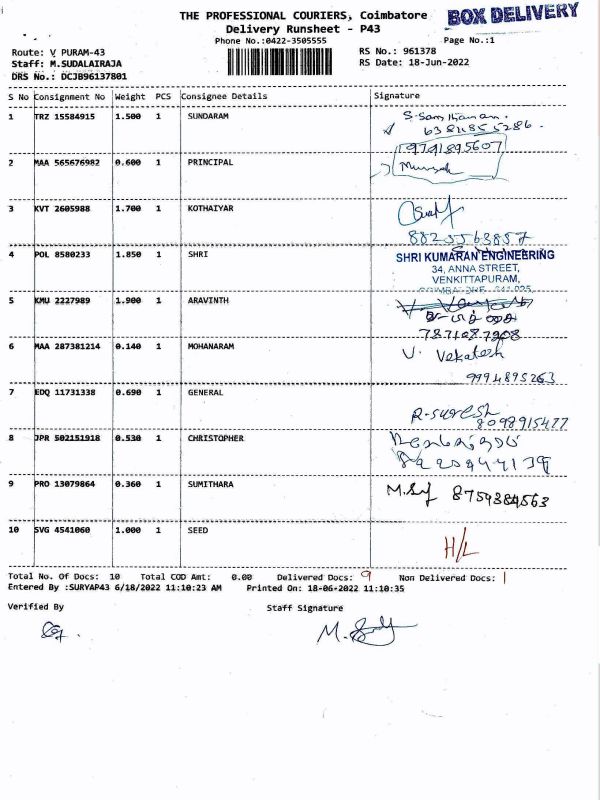 THE PROFESSIONAL COURIERS, Coimbatore
BOX DELIVERY
Delivery Runsheet - P43
Phone No.:0422-3505555
Page No.:1
Route: V PURAM-43
RS No.: 961378
Staff: M.SUDALAIRAJA
RS Date: 18-Jun-2022
DRS No.: DCJB96137801
S No Consignment No Weight PCS Consignee Details Signature
1 TRZ 15584915 1.500 1 SUNDARAM
9791895607
2 MAA 565676982 0.600 1 PRINCIPAL
3 KVT 2605988 1.700 1 KOTHAIYAR
4 POL 8580233 1.850 1 SHRI SHRI KUMARAN ENGINEERING
34, ANNA STREET,
VENKITTAPURAM,
5 KMU 2227989 1.900 1 ARAVINTH
7871087908
6 MAA 287381214 0.140 1 MOHANARAM V. Vekatesh
9994895263
7 EDQ 11731338 0.690 1 GENERAL
R-suresh
8098915477
8 JPR 502151918 0.530 1 CHRISTOPHER
9 PRO 13079864 0.360 1 SUMITHARA 8759384563
10 SVG 4541060 1.000 1 SEED H/L
Total No. Of Docs: 10 Total COD Amt: 0.00 Delivered Docs: 9 Non Delivered Docs: 1
Entered By :SURYAP43 6/18/2022 11:10:23 AM Printed On: 18-06-2022 11:10:35
Verified By Staff Signature